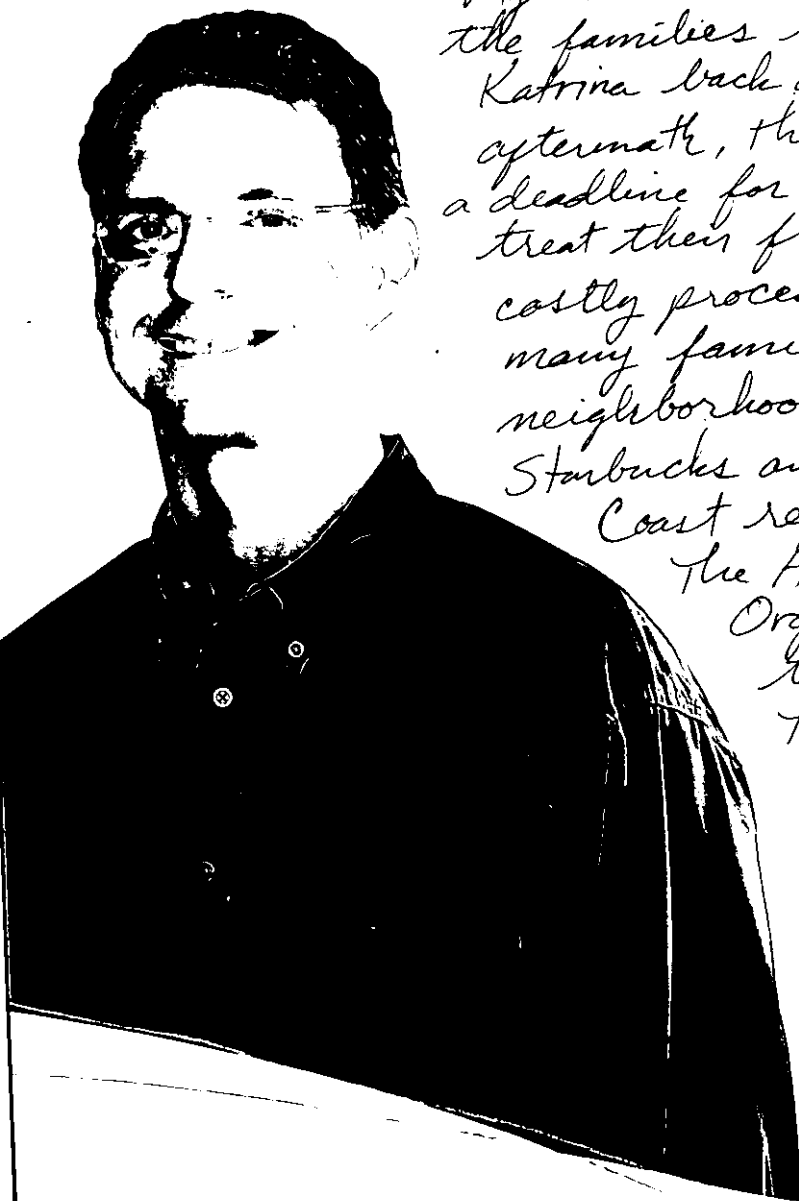 the families
Katrina back
aftermath, th
a deadline for
treat their f
costly proce
many fami
neighborhoo
Starbucks a
Coast re
The
Org